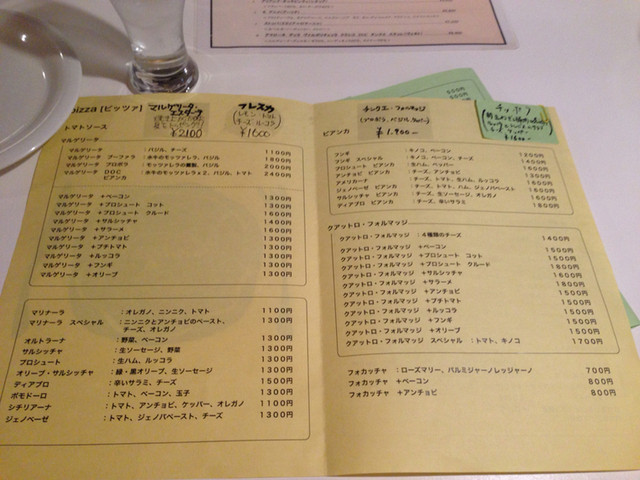 pizza [ピッツァ]
マルゲリータ
エスターテ
¥2100
フレスカ
レモン トマト
チーズ ルーコラ
¥1600
トマトソース
マルゲリータ
マルゲリータ :バジル、チーズ 1100円
マルゲリータ ブーファラ :水牛のモッツァレラ、バジル 1800円
マルゲリータ プロボラ :モッツァレラの燻製、バジル 2000円
マルゲリータ DOC :水牛のモッツァレラx2、バジル、トマト 2400円
ビアンカ
マルゲリータ +ベーコン 1300円
マルゲリータ +プロシュート コット 1300円
マルゲリータ +プロシュート クルード 1600円
マルゲリータ +サルシッチャ 1400円
マルゲリータ +サラーメ 1600円
マルゲリータ +アンチョビ 1300円
マルゲリータ +プチトマト 1300円
マルゲリータ +ルッコラ 1300円
マルゲリータ +フンギ 1300円
マルゲリータ +オリーブ 1300円
マリナーラ :オレガノ、ニンニク、トマト 1100円
マリナーラ スペシャル :ニンニクとアンチョビのペースト、 1300円
チーズ、オレガノ
オルトラーナ :野菜、ベーコン 1300円
サルシッチャ :生ソーセージ、野菜 1300円
プロシュート :生ハム、ルッコラ 1300円
オリーブ・サルシッチャ :緑・黒オリーブ、生ソーセージ 1300円
ディアブロ :辛いサラミ、チーズ 1500円
ポモドーロ :トマト、ベーコン、玉子 1300円
シチリアーナ :トマト、アンチョビ、ケッパー、オレガノ 1100円
ジェノベーゼ :トマト、ジェノバペースト、チーズ 1300円
チンクエ・フォルマッジ
¥1,900-
ビアンカ
フンギ :キノコ、ベーコン
フンギ スペシャル :キノコ、ベーコン、チーズ
プロシュート ビアンカ :生ハム、ペッパー
アンチョビ ビアンカ :チーズ、アンチョビ
アメリカーナ :チーズ、トマト、生ハム、ルッコラ
ジェノベーゼ ビアンカ :チーズ、トマト、ハム、ジェノバペースト
サルシッチャ ビアンカ :チーズ、生ソーセージ、オレガノ
ディアブロ ビアンカ :チーズ、辛いサラミ
クアットロ・フォルマッジ
クアットロ・フォルマッジ :4種類のチーズ 1400円
クアットロ・フォルマッジ +ベーコン 1500円
クアットロ・フォルマッジ +プロシュート コット 1500円
クアットロ・フォルマッジ +プロシュート クルード 1800円
クアットロ・フォルマッジ +サルシッチャ 1600円
クアットロ・フォルマッジ +サラーメ 1800円
クアットロ・フォルマッジ +アンチョビ 1500円
クアットロ・フォルマッジ +プチトマト 1500円
クアットロ・フォルマッジ +ルッコラ 1500円
クアットロ・フォルマッジ +フンギ 1500円
クアットロ・フォルマッジ +オリーブ 1500円
クアットロ・フォルマッジ スペシャル :トマト、キノコ 1700円
フォカッチャ :ローズマリー、パルミジャーノレッジャーノ 700円
フォカッチャ +ベーコン 800円
フォカッチャ +アンチョビ 800円